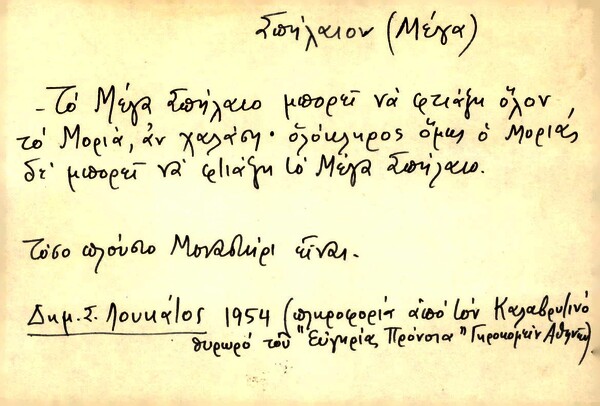 Σπήλαιον (Μέγα)
- Τό Μέγα Σπήλαιο μπορεῖ νά φτιάξῃ ὅλον
τό Μοριά, ἄν χαλάσῃ· ὁλόκληρος ὅμως ὁ Μοριάς
δέ μπορεῖ νά φτιάξῃ τό Μέγα Σπήλαιο.
Τόσο πλούσιο Μοναστήρι εἶναι.
Δημ. Σ. Λουκάτος 1954 (πληροφορία ἀπό τόν Καλαβρυτινό
θυρωρό τοῦ "Εὐγηρίας Πρόνοια" Γηροκομεῖν Ἀθηνῶν).